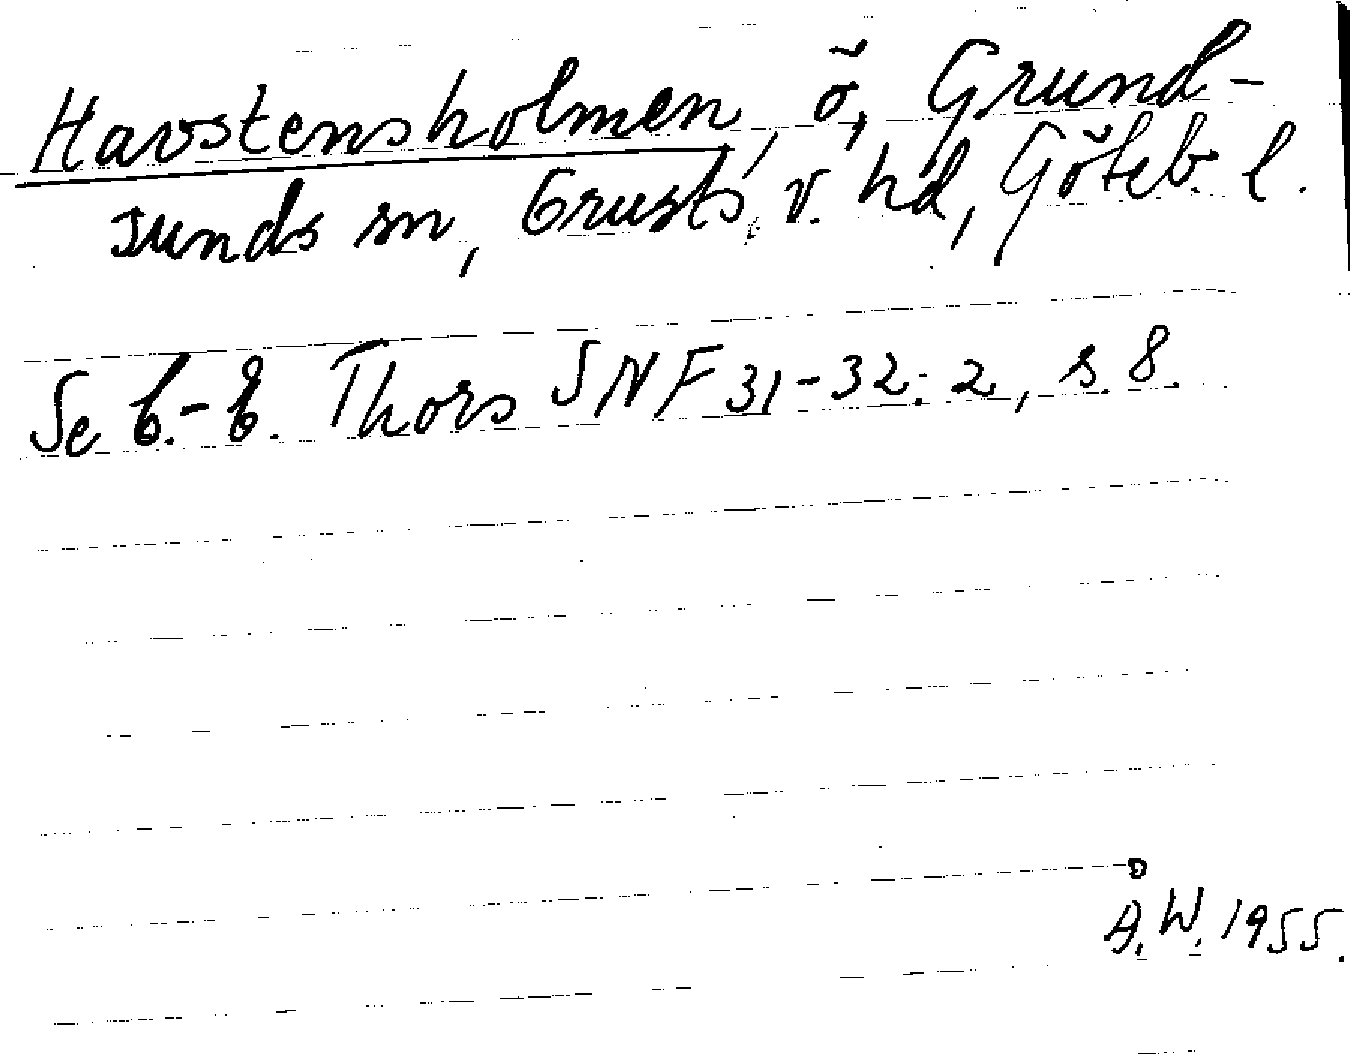 Havstensholmen, ö, Grund-
sunds sn, Orusts v. hd, Göteb. l.
Se C.-E. Thors SNF 31-32: 2, s. 8.
Å.W. 1955.